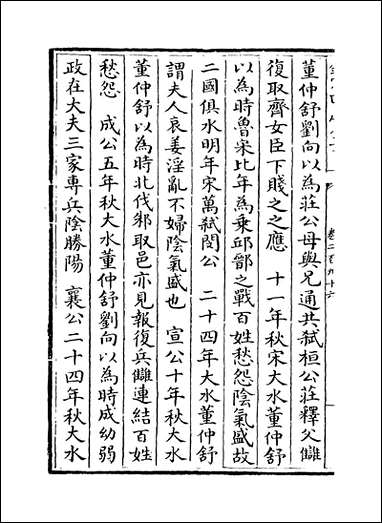 董仲舒劉向以為莊公母與兄通共弑桓公莊釋父讎
復取齊女臣下賤之之應　十一年秋宋大水董仲舒
以為時魯宋比年為乗邱鄑之戰百姓愁怨陰氣盛故
二國俱水明年宋萬弑閔公　二十四年大水董仲舒
謂夫人哀姜淫亂不婦陰氣盛也　宣公十年秋大水
董仲舒以為時比伐邾取邑亦見報復兵讎連結百姓
愁怨　成公五年秋大水董仲舒劉向以為時成幼弱
政在大夫三家專兵陰勝陽　襄公二十四年秋大水